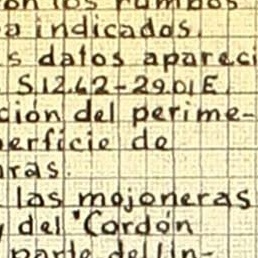 on los rumbos
a indicados.
s datos apareci
S12.42-29.01E.
ción del perime-
erficie de
ras.
las mojoneras
y del "Cordón
parte del lin-